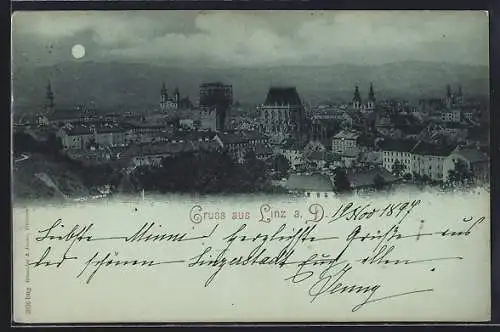 Gruss aus Linz a. D.
19 Nov 1897
Liebste Minna! Herzliche Grüße aus
der schönen Linzerstadt Euch allen
Jenny